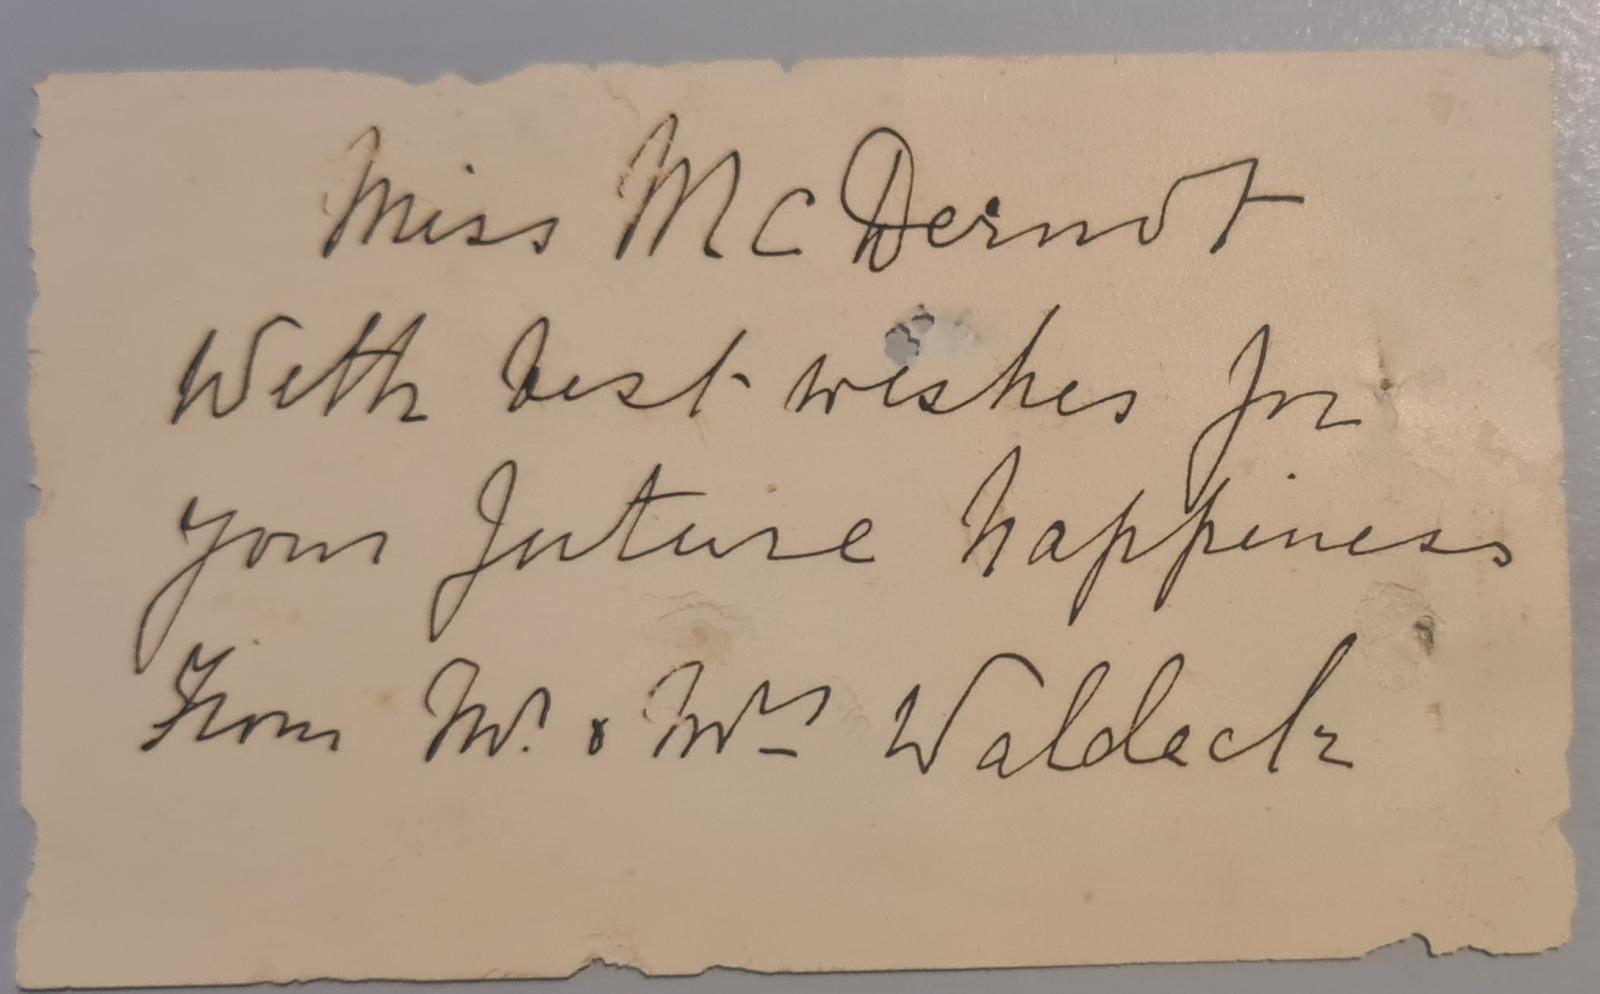 Miss McDermot
With best wishes for
your future happiness
From Mr. & Mrs Waldeck